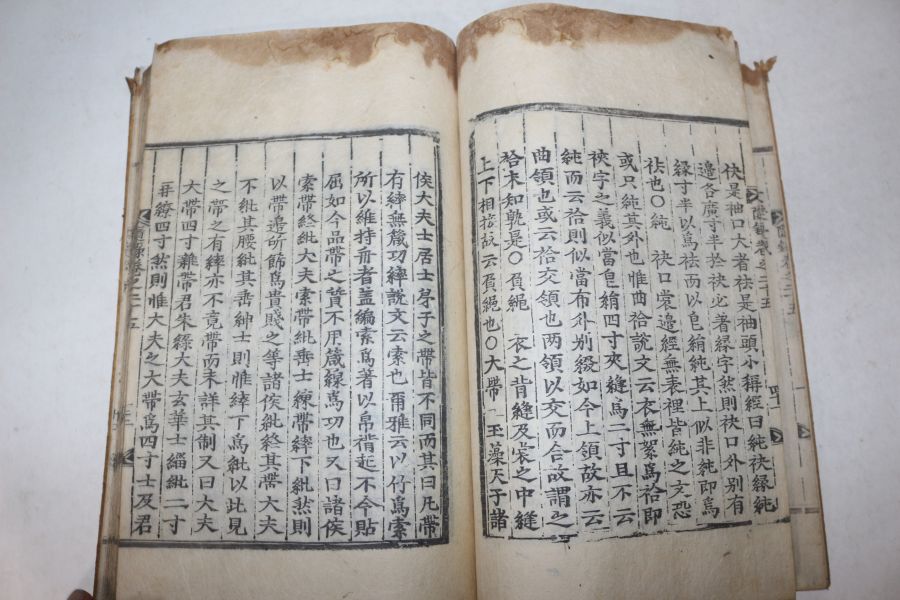 袂是袖口大者祛是袖頭小穪經曰純袂緣純
邊各廣寸半於袂必著緣字然則袂口外別有
緣寸半以爲祛而以皂絹純其上似非純即爲
祛也○純 袂口裳邊經無表裡皆純之文恐
或只純其外也惟曲袷說文云衣無絮爲袷即
裌字之義似當皂絹四寸夾縫爲二寸且不云
純而云袷則似當布外別綴如今上領故亦云
曲領也或云袷交領也两領以交而合故謂之
袷未知孰是○負繩 衣之背縫及裳之中縫
上下相接故云負繩也○大帶 玉藻天子諸
侯大夫士居士弟子之帶皆不同而其曰凡帶
有繂無箴功繂說文云索也爾雅云以竹爲索
所以維持舟者盖編索爲著以帛褙起不令貼
屈如今品帶之賛不用箴線爲功也又曰諸侯
素帶終紕大夫素帶紕垂士練帶繂下紕然則
以帶邊所飾爲貴賤之等諸侯紕終其帶大夫
不紕其腰紕其垂紳士則惟繂丁爲紕以此見
之帶之有繂亦不竟帶而未詳其制又曰大夫
大帶四寸雜帶君朱綠大夫玄華士緇紕二寸
再繚四寸然則惟大夫之大帶爲四寸士及君